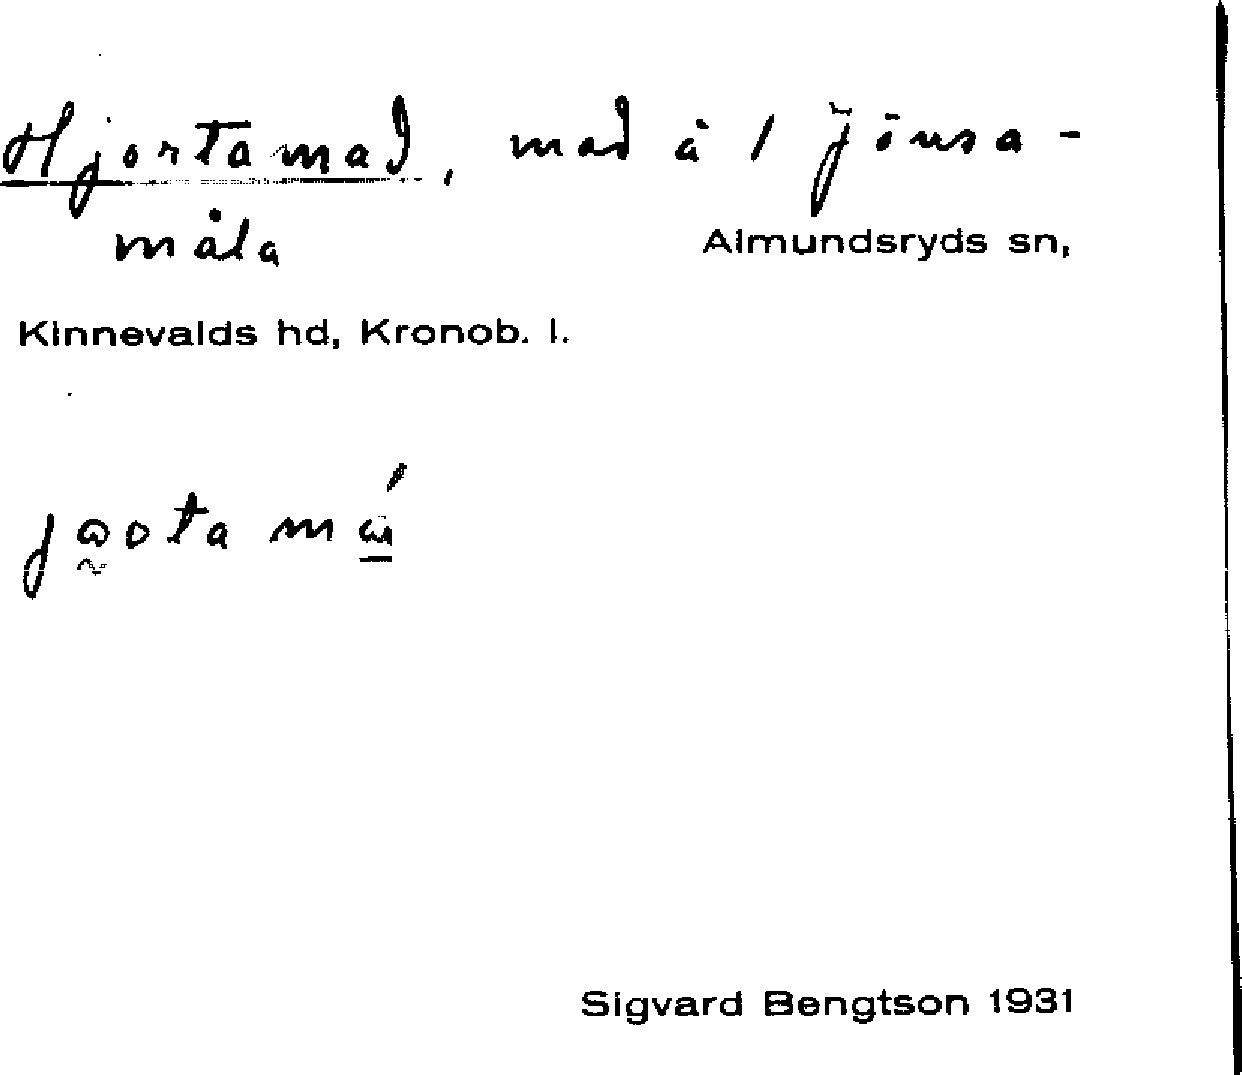 Hjortamad, mad å 1 Jönsa-
måla
Almundsryds sn,
Kinnevalds hd, Kronob. l.
Sigvard Bengtson 1931